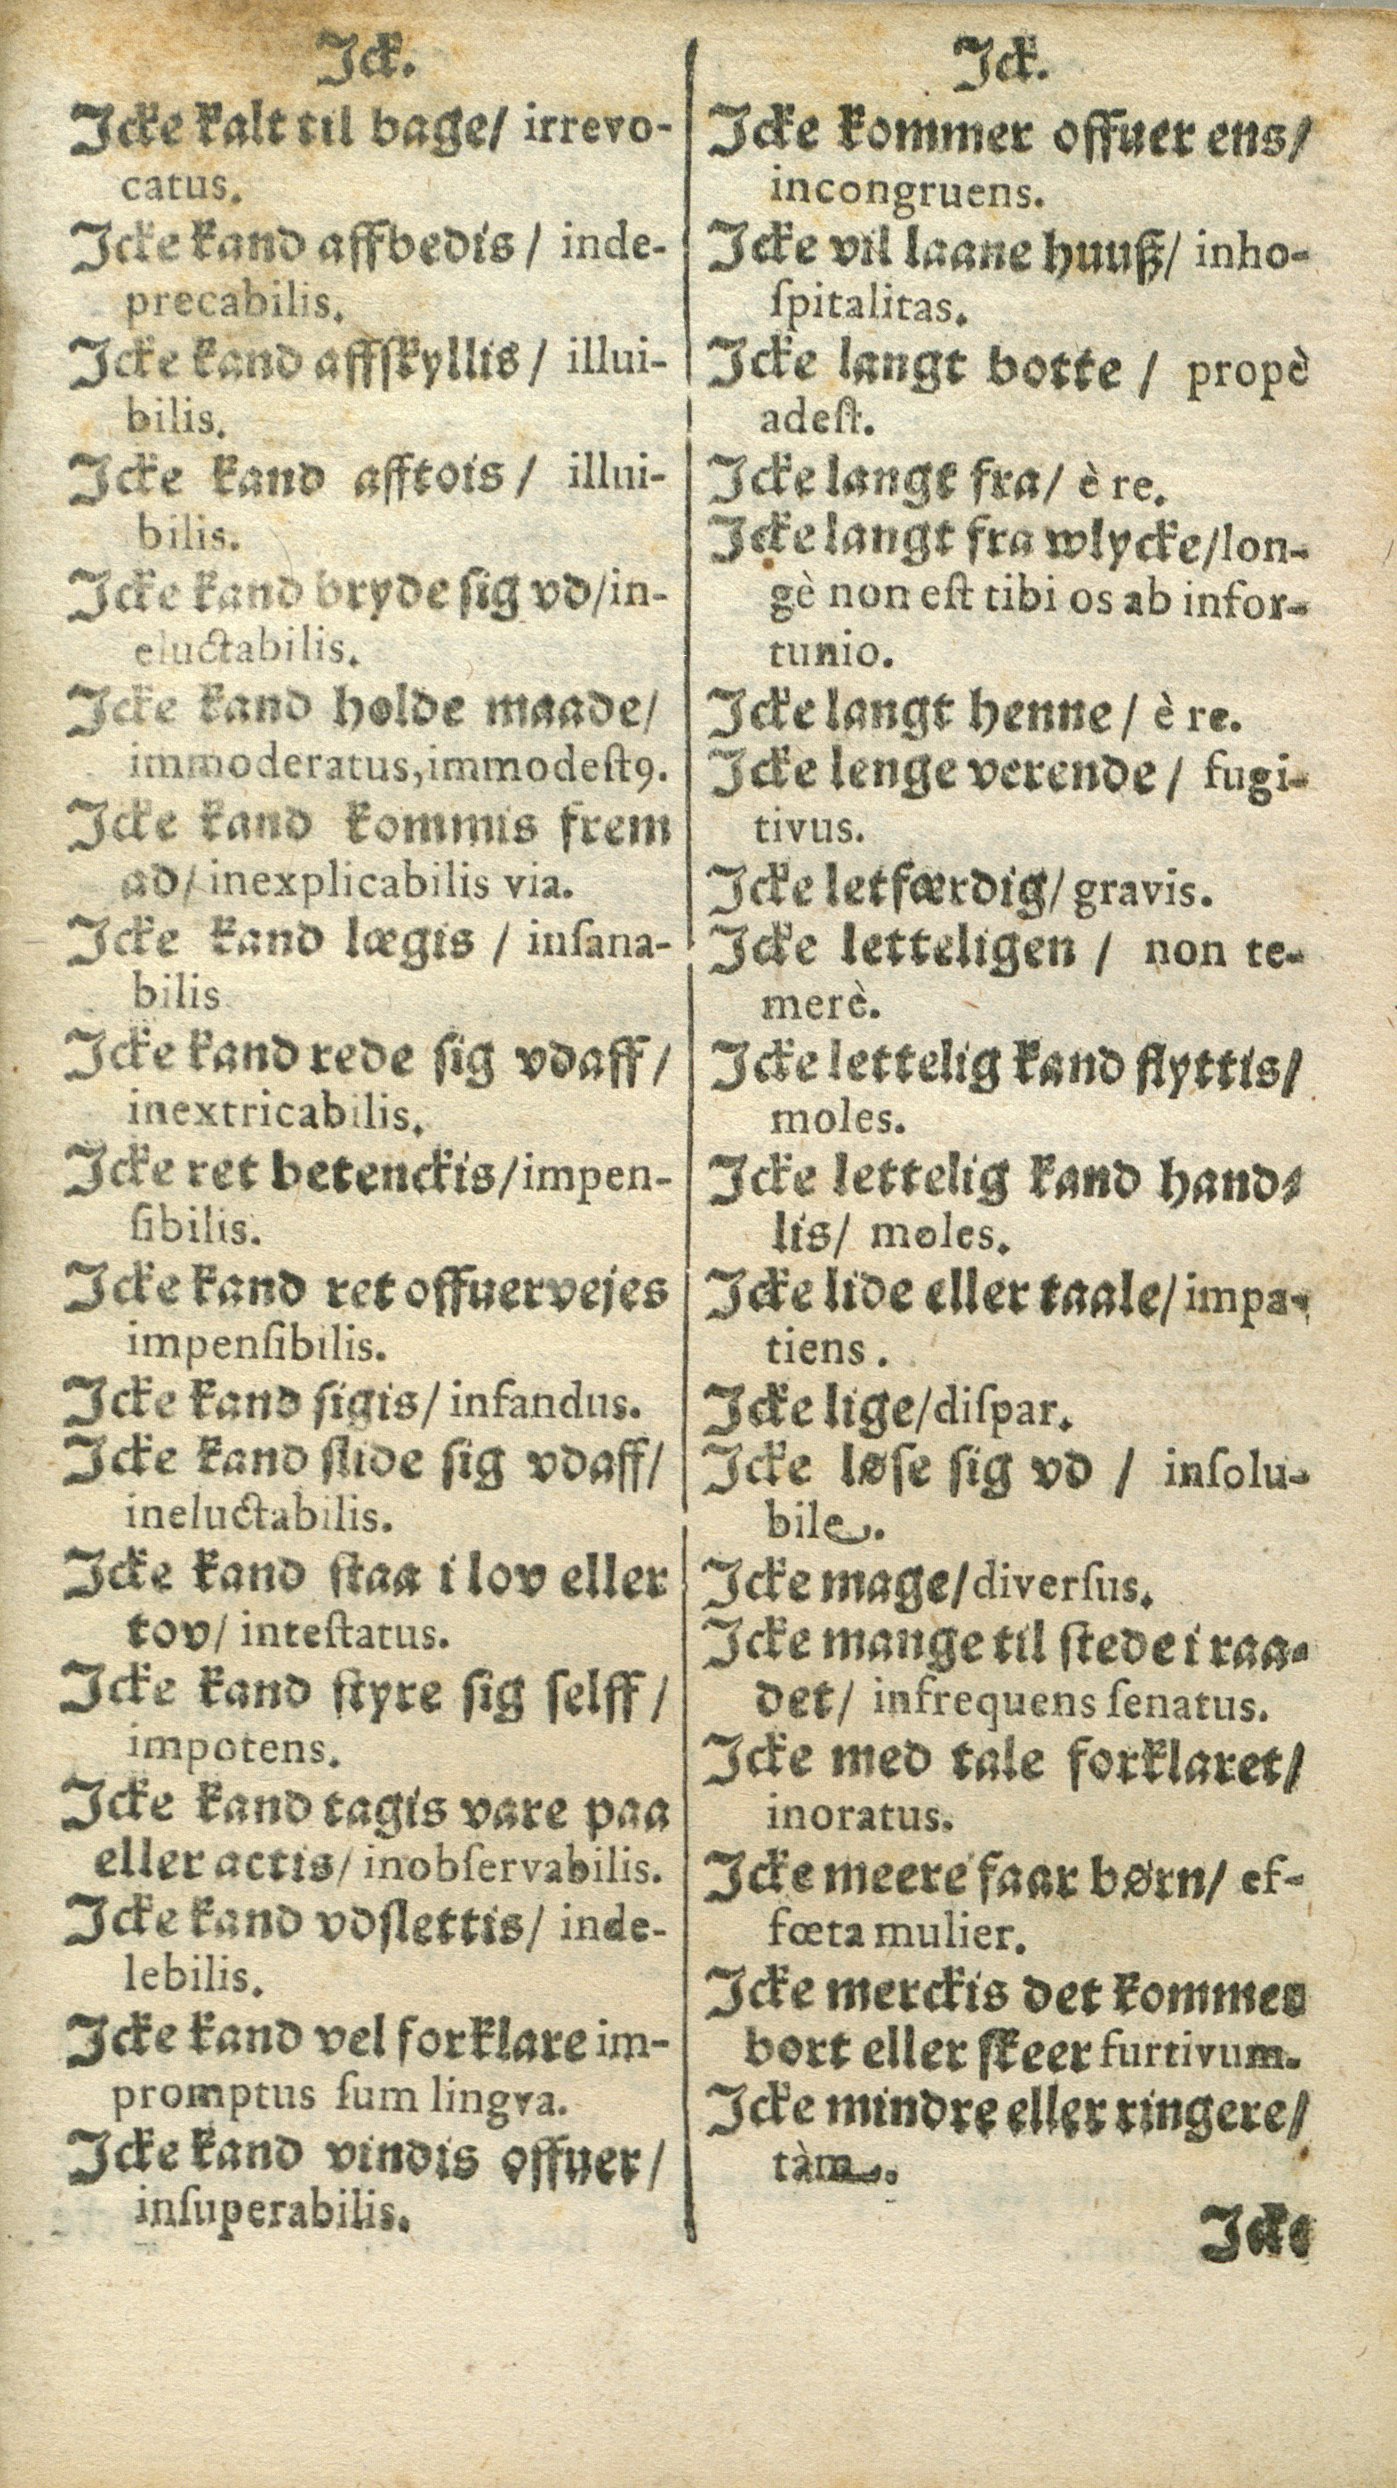 Jck.
Jcke kalt til bage/ irrevo-
catus.
Jcke kand affbedis/ inde-
precabilis.
Jcke kand affſkyllis/ illui-
bilis.
Jcke kand afftois/ illui-
bilis.
Jcke kand bryde ſig vd/in-
eluctabilis.
Jcke kand holde maade/
immoderatus,immodeſtꝰ.
Jcke kand kommis frem
ad/ inexplicabilis via.
Jcke kand lægis / inſana-
bilis
Jcke kand rede ſig vdaff/
inextricabilis.
Jcke ret betenckis/impen-
ſibilis.
Jcke kand ret offuervejes
impenſibilis.
Jcke kand ſigis/ infandus.
Jcke kand ſlide ſig vdaff/
ineluctabilis.
Jcke kand ſtaa i lov eller
tov/ inteſtatus.
Jcke kand ſtyre ſig ſelff/
impotens.
Jcke kand tagis vare paa
eller actis/ inobſervabilis.
Jcke kand vdſlettis/ inde-
lebilis.
Jcke kand vel forklare im-
promptus ſum lingva.
Jcke kand vindis offuer/
inſuperabilis.
Jck.
Jcke kommer offuer ens/
incongruens.
Jcke vil laane huuß/ inho-
ſpitalitas.
Jcke langt botte / propè
adeſt.
Jcke langt fra/ è re.
Jcke langt fra wlycke/lon-
gè non eſt tibi os ab infor-
tunio.
Jcke langt henne/ è re.
Jcke lenge verende/ fugi-
tivus.
Jcke letfærdig/ gravis.
Jcke letteligen / non te-
merè.
Jcke lettelig kand flyttis/
moles.
Jcke lettelig kand hand-
lis/ moles.
Jcke lide eller taale/ impa-
tiens.
Jcke lige/diſpar.
Jcke løſe ſig vd / inſolu-
bile.
Jcke mage/diverſus.
Jcke mange til ſtede i raa-
det/ infrequens ſenatus.
Jcke med tale forklaret/
inoratus.
Jcke meere faar børn/ ef-
fœta mulier.
Jcke merckis det kommer
bort eller ſkeer furtivum.
Jcke mindre eller ringere/
tàm.
Jcke